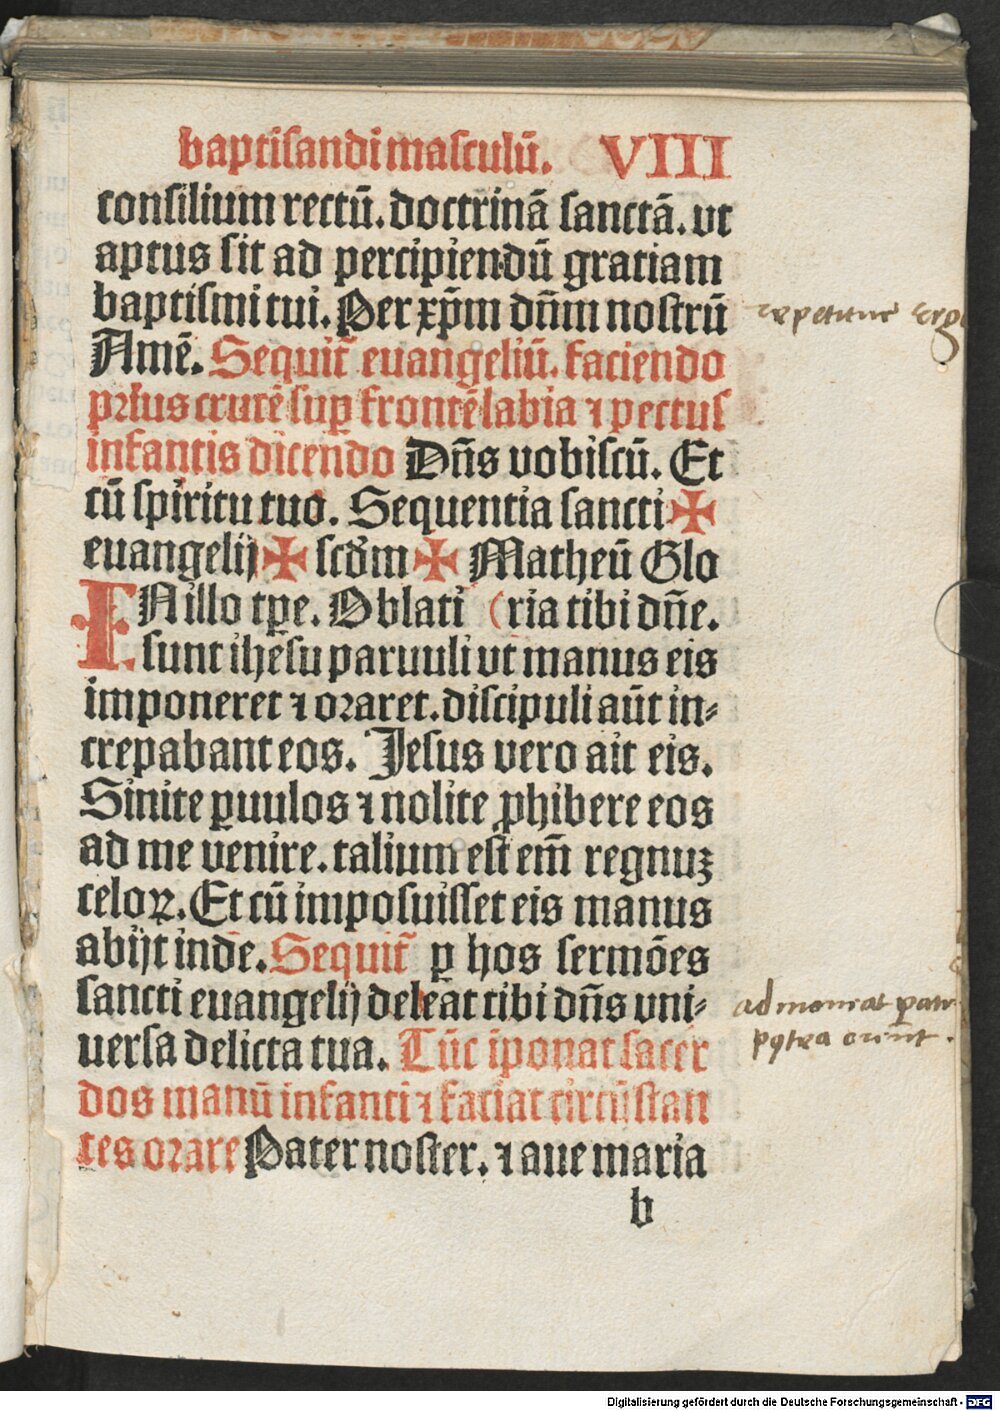 baptisandi masculū. VIII
consilium rectū. doctrinā sanctā. vt
aptus sit ad percipiendū gratiam
baptismi tui. Per xp̄m dn̄m nostrū
Amē. Sequit̄ euangeliū. faciendo
prius crucē sup̱ frontē labia ⁊ pectus
infantis dicendo Dn̄s vobiscū. Et
cū spiritu tuo. Sequentia sancti ✠
euangelij ✠ scd̄m ✠ Matheū Glo
IN illo tp̱e. Oblati (ria tibi dn̄e.
sunt ihesu paruuli vt manus eis
imponeret ⁊ oraret. discipuli aūt in-
crepabant eos. Jesus vero ait eis.
Sinite ꝑuulos ⁊ nolite ꝓhibere eos
ad me venire. talium est em̄ regnuꝫ
celoꝝ. Et cū imposuisset eis manus
abijt inde. Sequit̄ ꝑ hos sermōes
sancti euangelij deleat tibi dn̄s vni-
uersa delicta tua. Tūc iponat sacer
dos manū infanti ⁊ faciat circūstan
tes orare Pater noster. ⁊ aue maria
b
repetitur ergo
admoneat patr
orent.
Digitalisierung gefördert durch die Deutsche Forschungsgemeinschaft - DFG